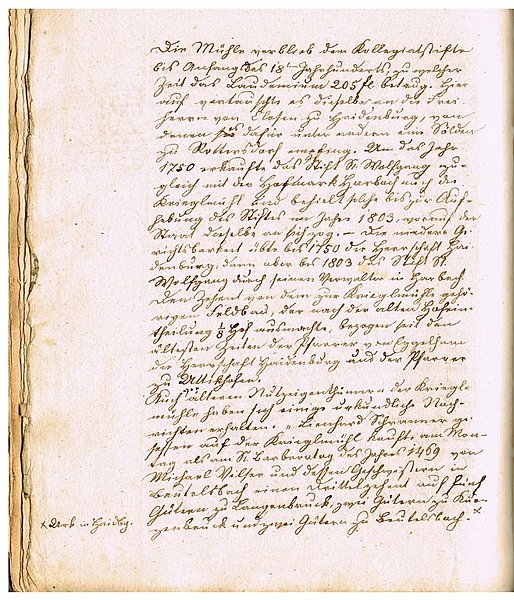 Die Mühle verblieb dem Kollegiatstifte
bis Anfangs des 18ten Jahrhunderts, zu welcher
Zeit das Laudemium 205 fl. betrug. Hier
auf vertauschte es dieselbe an die Frei-
herrn von Closen zu Haidenburg, von
denen es dafür unter andern eine Sölden
zu Rottersdorf empfing. Um das Jahr
1750 erkaufte das Stift St. Wolfgang zu-
gleich mit der Hofmark Harbach auch die
Krieglmühl und behielt solche bis zur Auf-
hebung des Stiftes im Jahre 1803, worauf der
Staat dieselbe an sich zog. — Die niedere Ge-
richtsbarkeit übte bis 1750 die Herrschaft Hai-
denburg, dann aber bis 1803 das Stift St.
Wolfgang durch seinen Verwalter in Harbach.
Den Zehent von dem zur Krieglmühle gehö-
rigen Feldbau, der nach der alten Hofein-
theilung 1/8 Hof ausmachte, bezogen seit den
ältesten Zeiten der Pfarrer von Egglham
die Herrschaft Haidenburg und der Pfarrer
zu Uttikhofen.
Auch ältern Nutzeigenthümern der Kriegl-
mühle haben sich einige urkundliche Nach-
richten erhalten. Lienhard
gesessen auf der Krieglmühl kauft am Mon-
tag als am St. Barbaratag des Jahres 1469 von
Michael Vilser und dessen Geschwistern in
Beutelsbach einen Drittelzehent auf fünf
Gütern zu Langenbruck, zwei Gütern zu Kü-
zenbruck und zwei Gütern zu Beutelsbach. x
x Urk. in Haidbg.